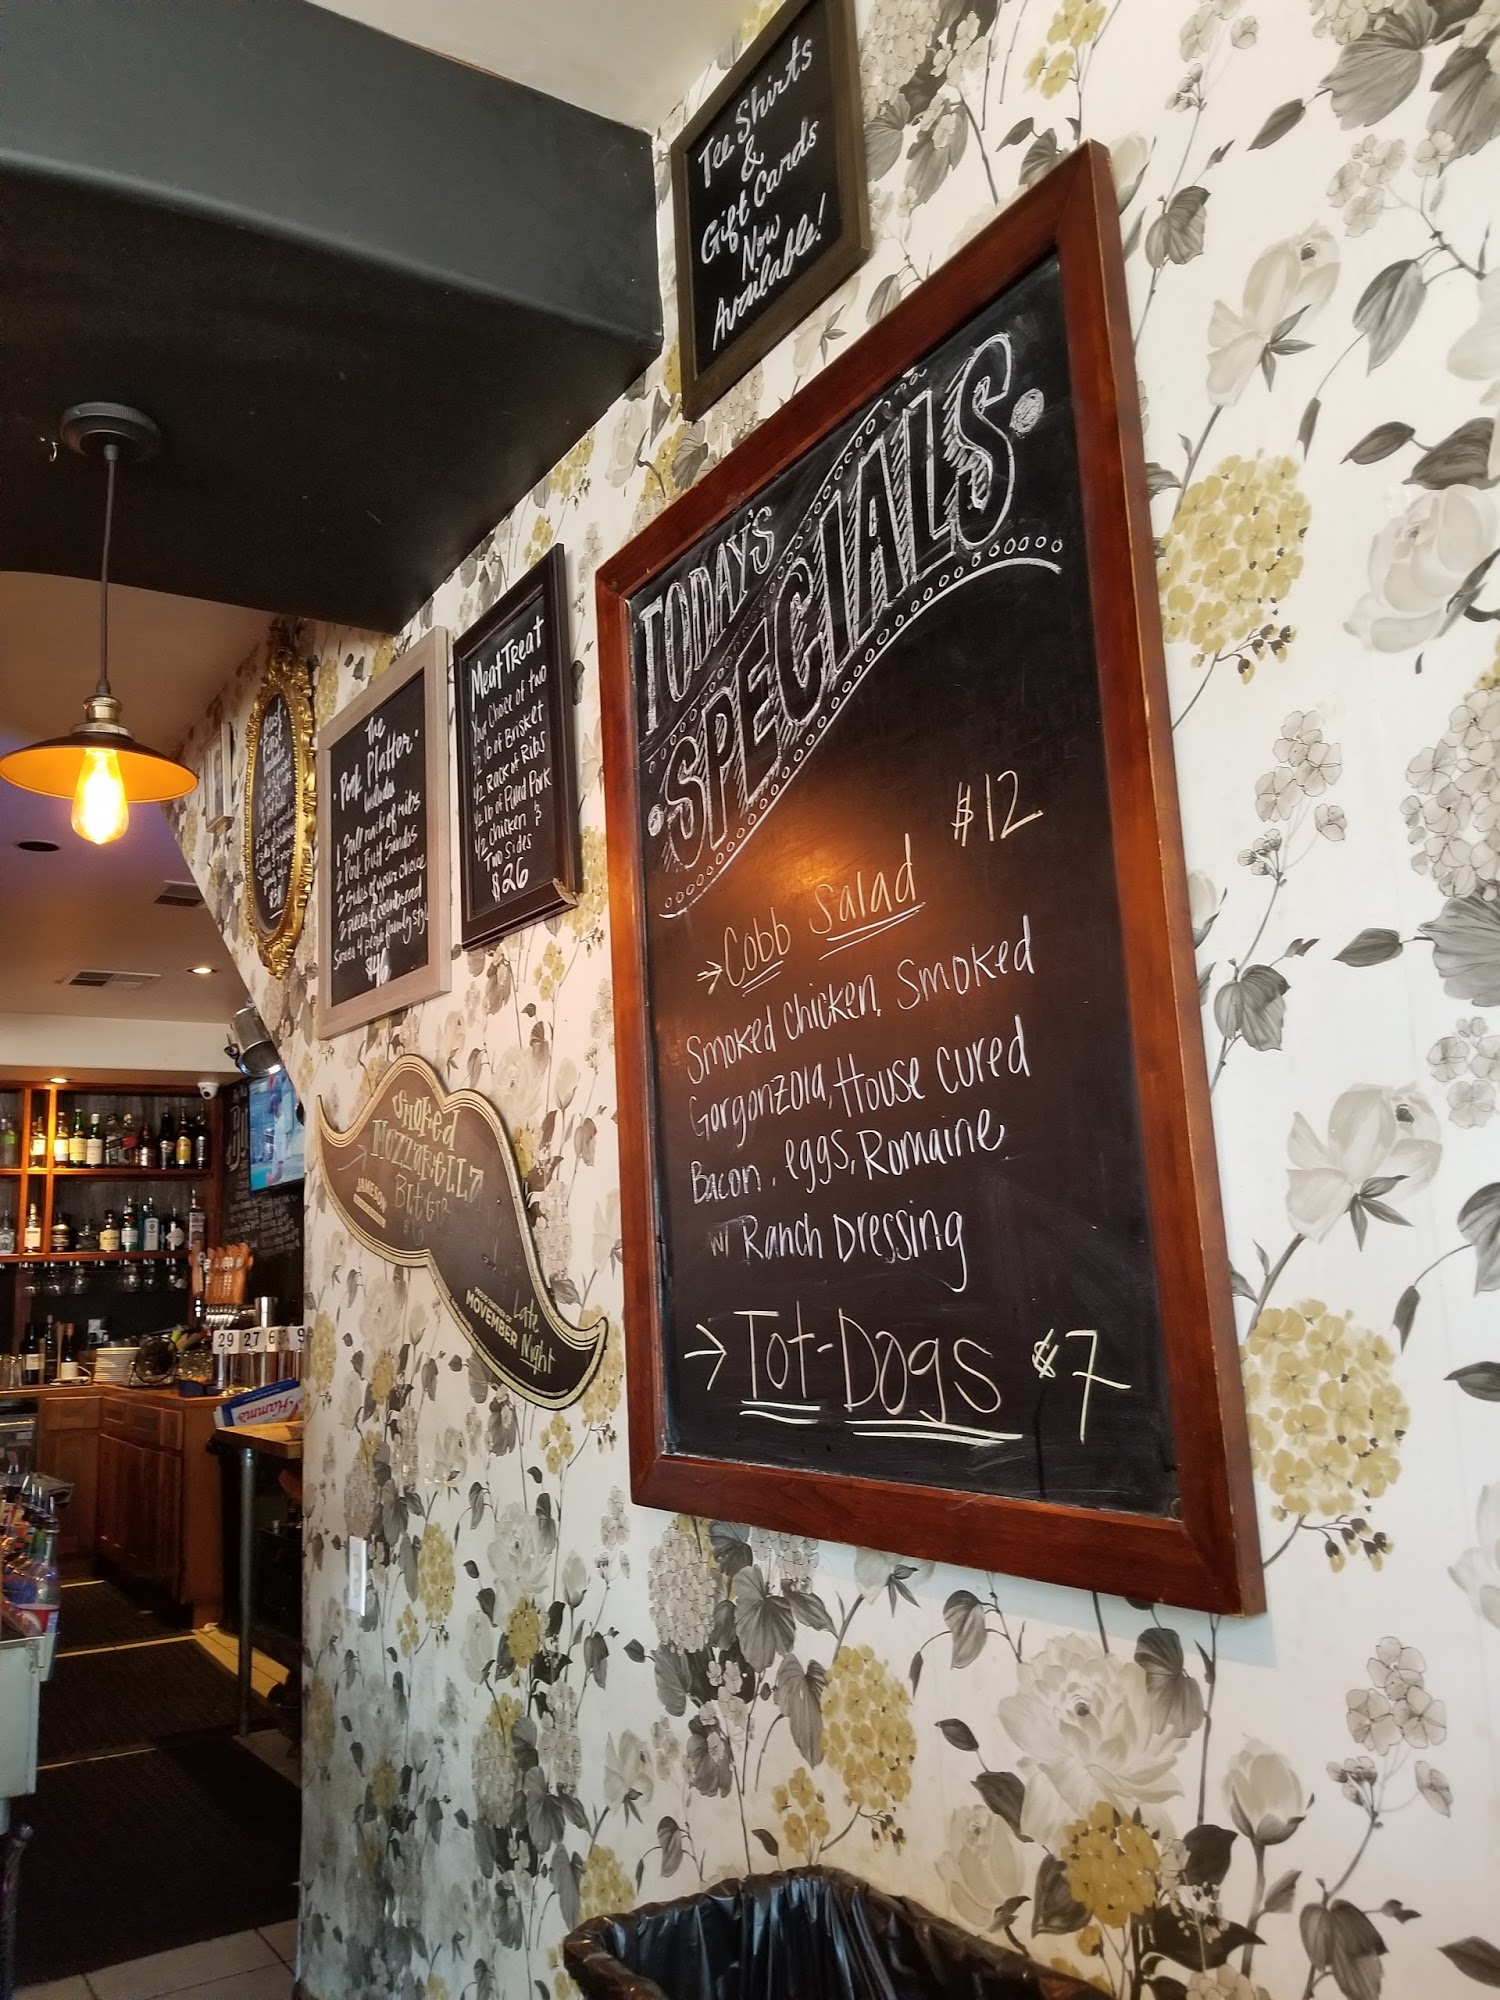 Tee Shirts
&
Gift Cards
Now
Available!
TODAY'S
SPECIALS
$12
→ Cobb Salad
Smoked Chicken, Smoked
Gorgonzola, House cured
Bacon, eggs, Romaine
w/ Ranch Dressing
→ Tot-Dogs $7
Meat Treat
Your Choice of two
½ lb of Brisket
1/2 Rack of Ribs
1/2 lb of Pulled Pork
1/2 Chicken &
Two Sides
$26
The
Pork Platter
includes
1 Full rack of ribs
2 Pork Butt Sandos
2 Sides of your choice
2 pieces of cornbread
Serves 4 people family style
$46
Smoked
Mozzarella
JAMESON
MOVEMBER
Late
Night
29 27 6 9
Hamm's